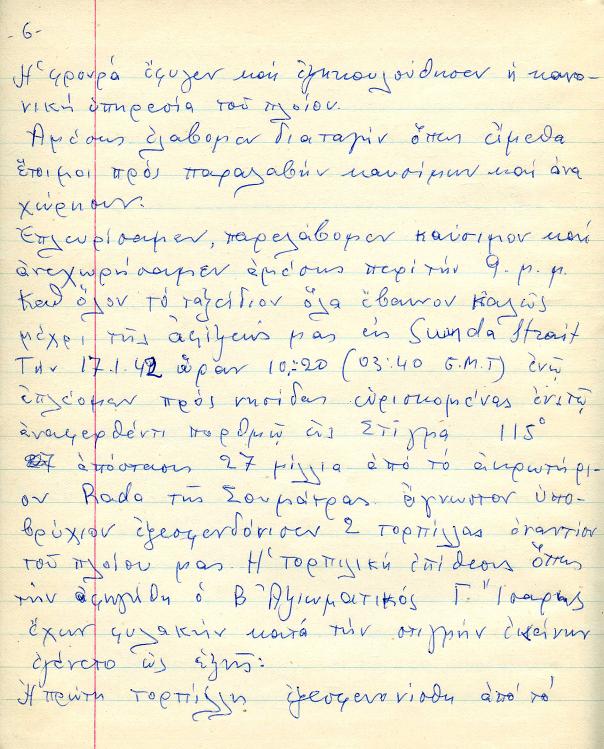 -6-
Ἡ φρουρά ἔφυγεν καί ἐπηκουλούθησεν ἡ κανο-
νική ὑπηρεσία τοῦ πλοίου.
Ἀμέσως ἐλάβομεν διαταγήν ὅπως εἴμεθα
ἕτοιμοι πρός παραλαβήν καυσίμων καί ἀνα
χώρησιν.
Ἐπλευρίσαμεν, παρελάβομεν καύσιμον καί
ἀνεχωρήσαμεν ἀμέσως περί τήν 9. μ. μ.
Καθ ὅλον τό ταξείδιον ὅλα ἔβαινον καλῶς
μέχρι τῆς ἀφίξεώς μας εἰς Sunda Strait
Τήν 17.1.42 ὥραν 10:20 (03:40 G.M.T) ἐνῷ
ἐπλέομεν πρός νησίδας εὑρισκομένας ἐν τῷ
ἀναφερθέντι πορθμῷ εἰς Στίγμα 115°
ἀπόστασις 27 μίλλια ἀπό τό ἀκρωτήρι-
ον Rada τῆς Σουμάτρας ἄγνωστον ὑπο-
βρύχιον ἐξεσφενδόνισεν 2 τορπίλλας ἐναντίον
τοῦ πλοίου μας. Ἡ τορπιλική ἐπίθεσις ὅπως
τήν ἀφηγήθη ὁ Β Ἀξιωματικός Γ. Ἴσαρης
ἔχων φυλακήν κατά τήν στιγμήν ἐκείνην
ἐγένετο ὡς ἑξῆς:
Ἡ πρώτη τορπίλλη ἐξεσφενονίσθη ἀπό τό